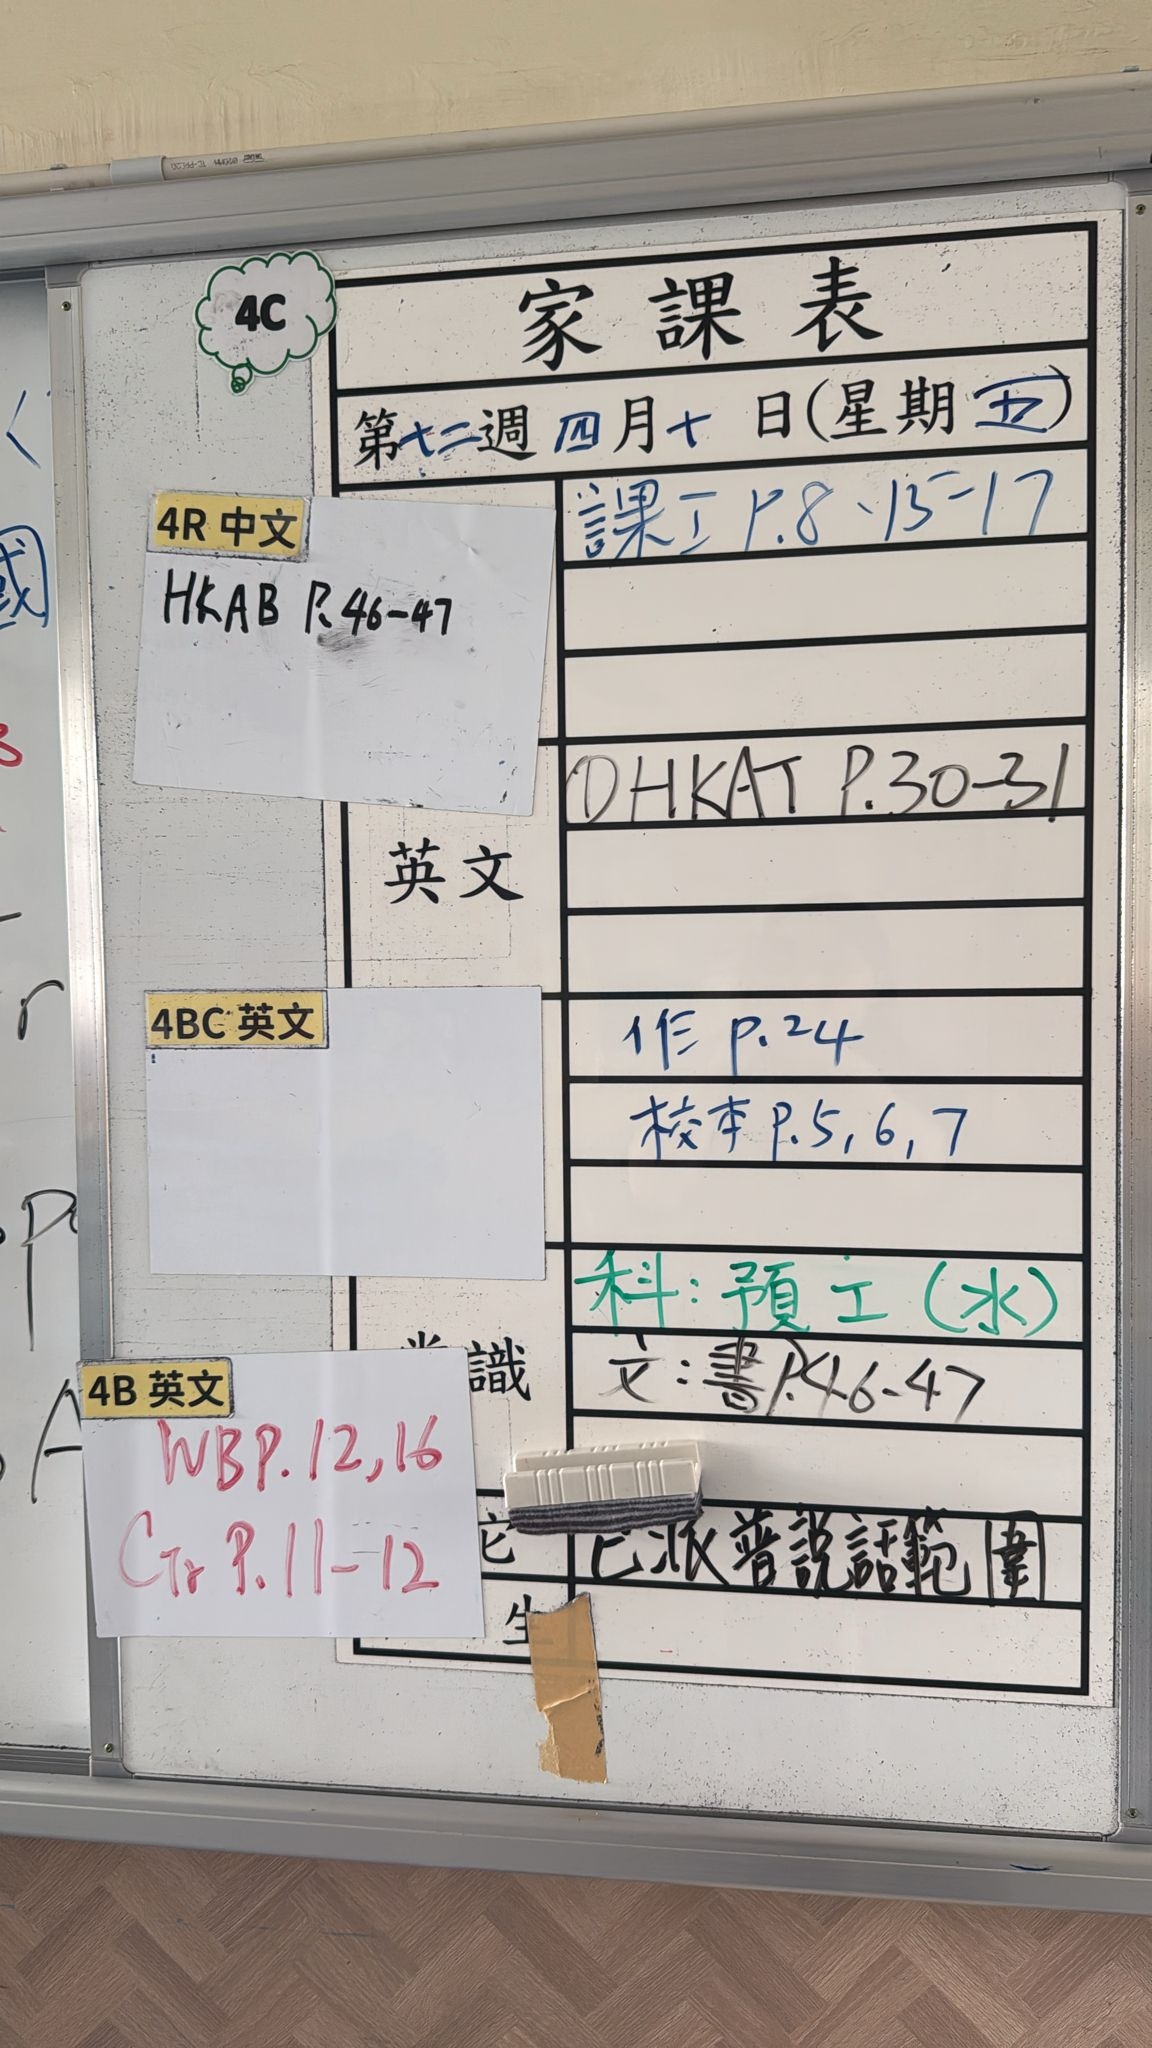 4C
家課表
第十二週 四月十 日(星期五)
4R 中文
HKAB P.46-47
課工 P.8、15-17
英文
①HKAT P.30-31
4BC 英文
作 p.24
校本 P.5, 6, 7
常識
科:預工(水)
文:書P.46-47
4B 英文
WB P.12,16
P.11-12
已派普說話範圍